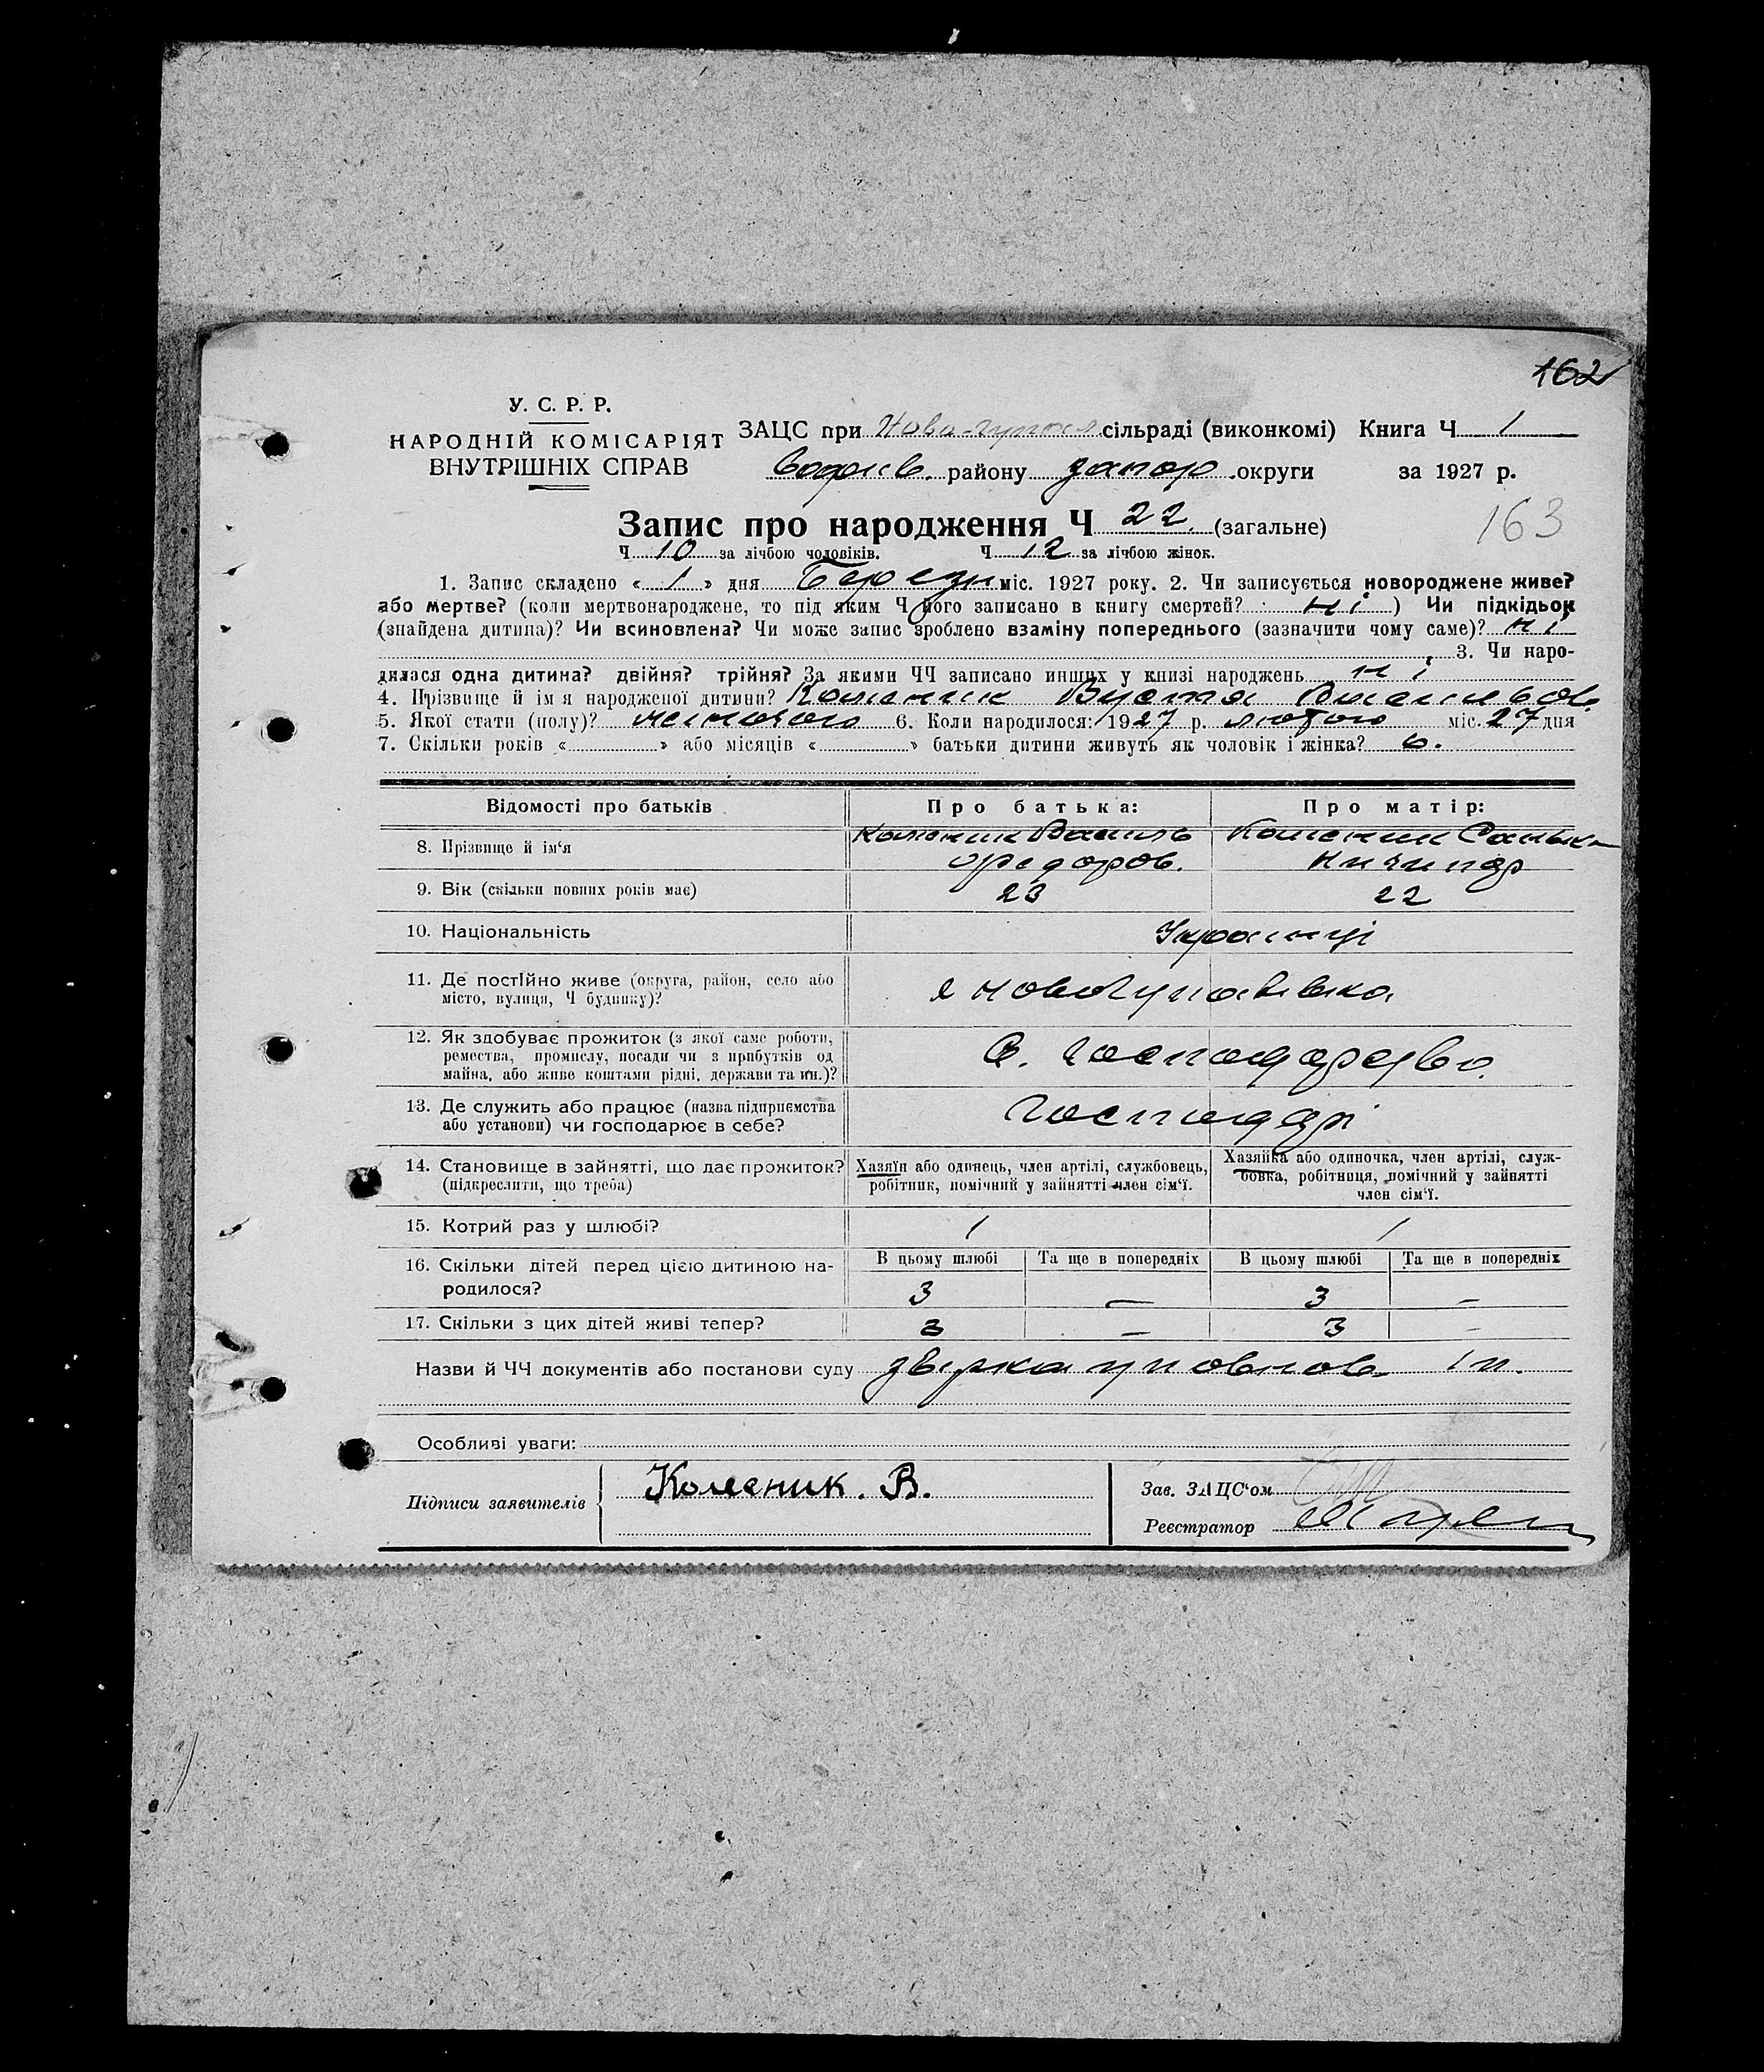 162
У. С. Р. Р.
НАРОДНІЙ КОМІСАРІЯТ
ВНУТРІШНІХ СПРАВ
ЗАЦС при сільраді (виконкомі) Книга Ч 1
району запор. округи за 1927 р.
Запис про народження Ч 22 (загальне)
163
Ч 10 за лічбою чоловіків. Ч 12 за лічбою жінок.
1. Запис складено « 1 » дня Березн міс. 1927 року. 2. Чи записується новороджене живе?
або мертве? (коли мертвонароджене, то під яким Ч його записано в книгу смертей? ні ) Чи підкідьок
(знайдена дитина)? Чи всиновлена? Чи може запис зроблено взаміну попереднього (зазначити чому саме)? ні
3. Чи наро-
дилася одна дитина? двійня? трійня? За якими ЧЧ записано инших у книзі народжень ні
4. Прізвище й ім я народженої дитини? Коленик
5. Якої стати (полу)? 6. Коли народилося: 1927 р. лютого міс. 27 дня
7. Скільки років « » або місяців « » батьки дитини живуть як чоловік і жінка? 6.
Відомості про батьків Про батька: Про матір:
8. Прізвище й ім'я Коленик Василь Коленик
Федоров. Ничипор
9. Вік (скільки повних років має) 23 22
10. Національність Українці
11. Де постійно живе (округа, район, село або
місто, вулиця, Ч будинку)?
12. Як здобуває прожиток (з якої саме роботи,
ремества, промислу, посади чи з прибутків од
майна, або живе коштами рідні, держави та ин.)?
С. господарство.
13. Де служить або працює (назва підприємства
або установи) чи господарює в себе?
господарі
14. Становище в зайнятті, що дає прожиток?
(підкреслити, що треба)
Хазяїн або одинець, член артілі, службовець,
робітник, помічний у зайнятті член сім'ї.
Хазяйка або одиночка, член артілі, служ-
бовка, робітниця, помічний у зайнятті
член сім'ї.
15. Котрий раз у шлюбі? 1 1
16. Скільки дітей перед цією дитиною на-
родилося?
В цьому шлюбі Та ще в попередніх В цьому шлюбі Та ще в попередніх
3 — 3 —
17. Скільки з цих дітей живі тепер? 3 — 3 —
Назви й ЧЧ документів або постанови суду
Особливі уваги:
Підписи заявителів Коленик. В.
Зав. ЗАЦС'ом
Реєстратор